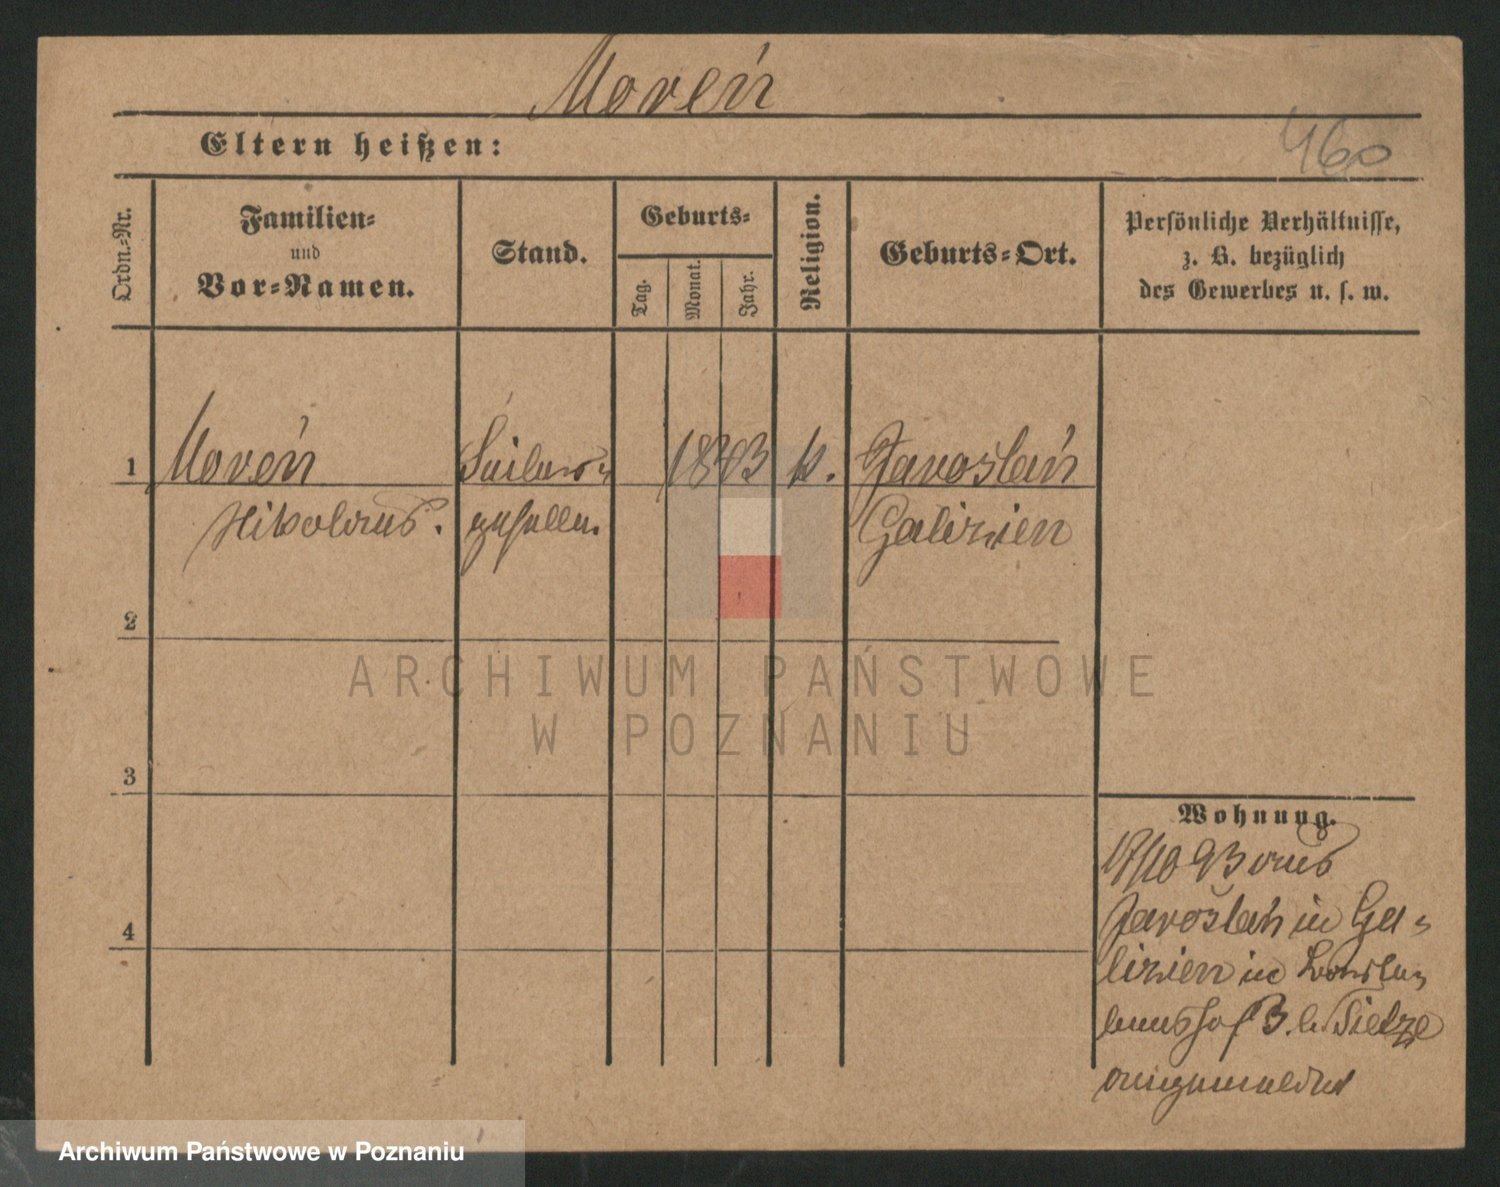 Moreń
Eltern heißen:
460
Ordn.-Nr.
Familien-
und
Vor-Namen.
Stand.
Geburts-
Tag.
Monat.
Jahr.
Religion.
Geburts-Ort.
Persönliche Verhältnisse,
z. B. bezüglich
des Gewerbes u. s. w.
1
Moreń
Nikolaus.
Seiler-
geselle.
k.
Jaroslaú
Galizien
2
3
4
Wohnung.
17/10 93 aus
Jaroslaú in Ga-
lizien in
3. b. Tietze
angemeldet
ARCHIWUM PAŃSTWOWE
W POZNANIU
Archiwum Państwowe w Poznaniu